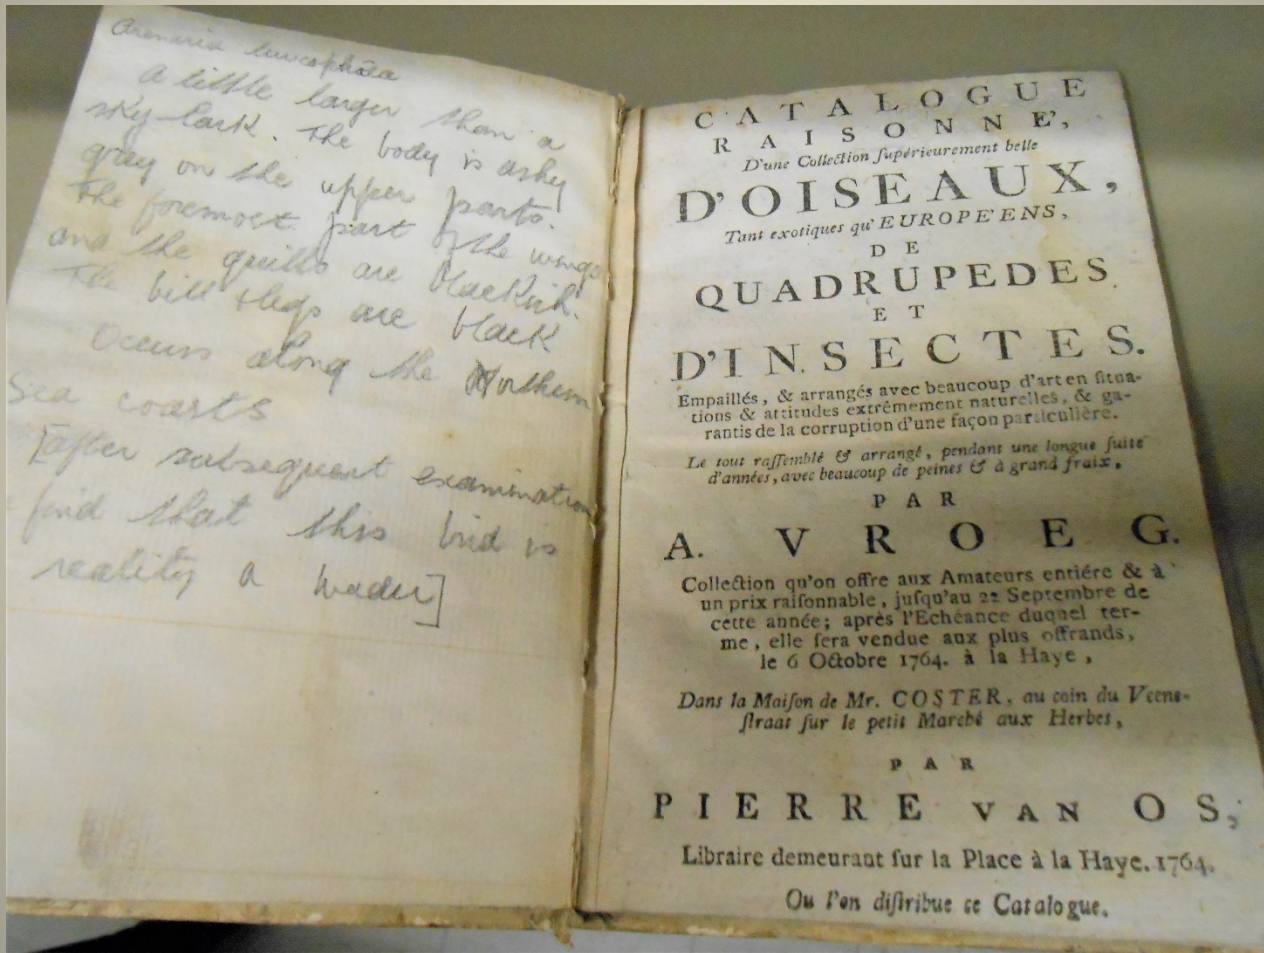 Arenaria leucophæa
A little larger than a
sky-lark. The body is ashy
gray on the upper parts.
The foremost part of the wings
and the quills are blackish.
The bill & legs are black
Occurs along the Northern
Sea coasts
[After subsequent examination
I find that this bird is
reality a wader]
CATALOGUE
RAISONNE',
D'une Collection ſupérieurement belle
D'OISEAUX,
Tant exotiques qu'EUROPE'ENS,
DE
QUADRUPEDES
ET
D'INSECTES.
Empaillés, & arrangés avec beaucoup d'art en ſitua-
tions & attitudes extrêmement naturelles, & ga-
rantis de la corruption d'une façon particuliére.
Le tout raſſemblé & arrangé, pendant une longue ſuite
d'années, avec beaucoup de peines & à grand fraix,
PAR
A. VROEG.
Collection qu'on offre aux Amateurs entiére & à
un prix raiſonnable, juſqu'au 22 Septembre de
cette année; après l'Echéance duquel ter-
me, elle ſera vendue aux plus offrands,
le 6 Octobre 1764. à la Haye,
Dans la Maiſon de Mr. COSTER, au coin du Veene-
ſtraat ſur le petit Marché aux Herbes,
PAR
PIERRE VAN OS,
Libraire demeurant ſur la Place à la Haye. 1764.
Ou l'on diſtribue ce Catalogue.